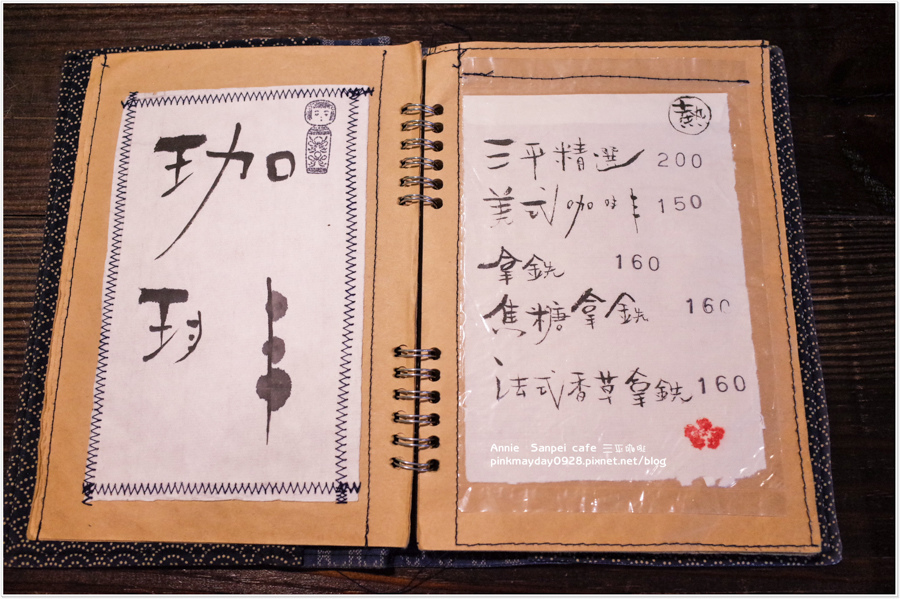 珈琲
熱
三平精選 200
美式咖啡 150
拿鉄 160
焦糖拿鉄 160
法式香草拿鉄 160
Annie Sanpei cafe 三平珈琲
pinkmayday0928.pixnet.net/blog